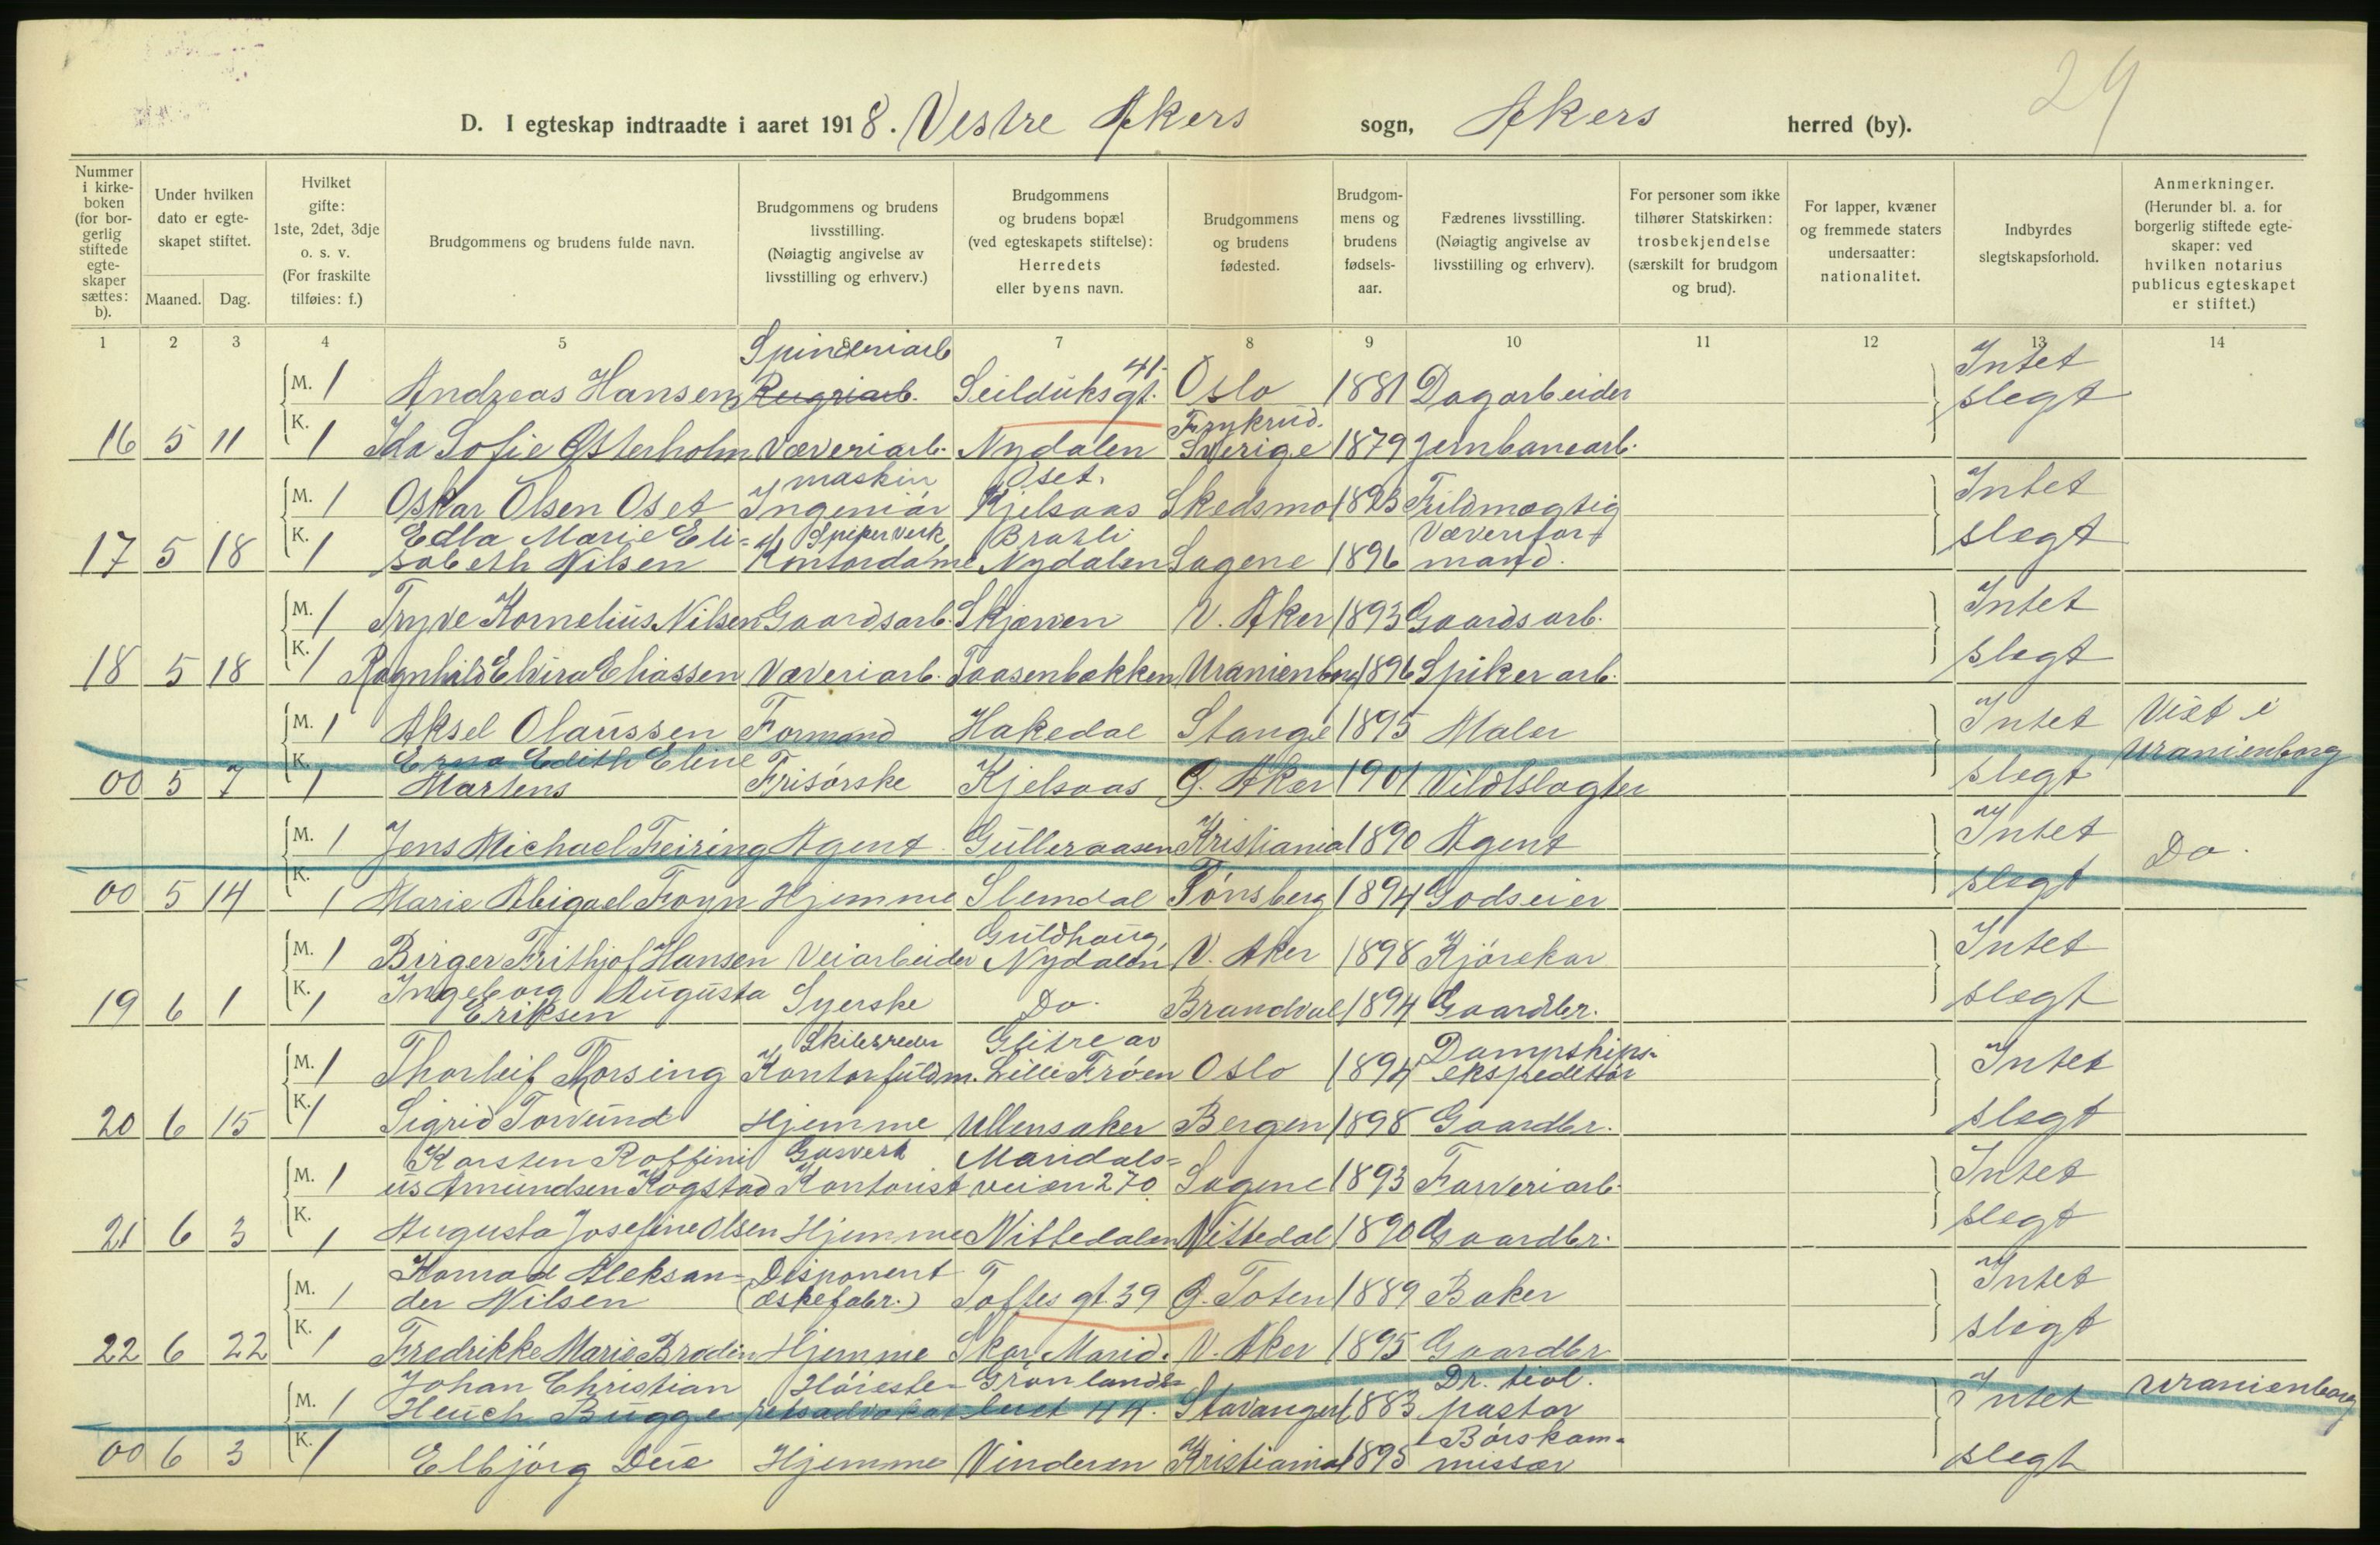 29
D. I egteskap indtraadte i aaret 1918. Vestre Akers sogn, Akers herred (by).
Nummer i kirkeboken (for borgerlig stiftede egteskaper sættes: b).
Under hvilken dato er egteskapet stiftet.
Maaned. Dag.
Hvilket gifte: 1ste, 2det, 3dje o. s. v. (For fraskilte tilføies: f.)
Brudgommens og brudens fulde navn.
Brudgommens og brudens livsstilling. (Nøiagtig angivelse av livsstilling og erhverv.)
Brudgommens og brudens bopæl (ved egteskapets stiftelse): Herredets eller byens navn.
Brudgommens og brudens fødested.
Brudgommens og brudens fødselsaar.
Fædrenes livsstilling. (Nøiagtig angivelse av livsstilling og erhverv).
For personer som ikke tilhører Statskirken: trosbekjendelse (særskilt for brudgom og brud).
For lapper, kvæner og fremmede staters undersaatter: nationalitet.
Indbyrdes slegtskapsforhold.
Anmerkninger. (Herunder bl. a. for borgerlig stiftede egteskaper: ved hvilken notarius publicus egteskapet er stiftet.)
1 2 3 4 5 6 7 8 9 10 11 12 13 14
M. 1 Andreas Hansen Spinderiarb Seilduksgt. 41. Oslo 1881 Dagarbeider Intet
16 5 11 K. 1 Ida Sofie Østerholm Væveriarb. Nydalen Frykrud. Sverige 1879 Jernbanearb. slegt
M. 1 Oskar Olsen Oset maskin Ingeniør Oset. Kjelsaas Skedsmo 1893 Fuldmægtig Intet
17 5 18 K. 1 Edla Marie Elisabeth Nilsen Spigerverk Kontordame Bratli Nydalen Sagene 1896 Væveriformand. slegt
M. 1 Trygve Kornelius Nilsen Gaardsarb. Skjerven V. Aker 1893 Gaardsarb. Intet
18 5 18 K. 1 Ragnhild Elvira Eliassen Væveriarb. Taasenbakken Uranienbrg 1896 Spikerarb. slegt
M. 1 Aksel Olaussen Formand Hakedal Stange 1895 Maler Intet Viet i
00 5 7 K. 1 Erna Edith Eline Martens Frisørske Kjelsaas Ø. Aker 1901 Vildtslagter slegt Uranienborg
M. 1 Jens Michael Feiring Agent Gulleraasen Kristiania 1890 Agent Intet Do.
00 5 14 K. 1 Marie Abigael Foyn Hjemme Slemdal Tønsberg 1894 Godseier slegt
M. 1 Birger Frithjof Hansen Veiarbeider Guldhaug, Nydalen V. Aker 1898 Kjørekar Intet
19 6 1 K. 1 Ingeborg Augusta Eriksen Syerske Do. Brandval 1894 Gaardbr. slegt
M. 1 Thorleif Thorsing Skibsreder Kontorfuldm. Glitre av Lille Frøen Oslo 1894 Dampskipsekspeditør Intet
20 6 15 K. 1 Sigrid Torvund Hjemme Ullensaker Bergen 1898 Gaardbr. slegt
M. 1 Karsten Raffinius Amundsen Kogstad Gasverk Kontorist Maridalsveien 270 Sagene 1893 Farveriarb. Intet
21 6 3 K. 1 Augusta Josefine Olsen Hjemme Nittedalen Nittedal 1890 Gaardbr. slegt
M. 1 Konrad Aleksander Nilsen Disponent (æskefabr.) Toftes gt. 39 Ø. Toten 1889 Baker Intet
22 6 22 K. 1 Fredrikke Marie Brodin Hjemme Skar, Marid. V. Aker 1895 Gaardbr slegt
M. 1 Johan Christian Heuch Bugge Høiesteretsadvokat Grønlandsleret 44. Stavanger 1883 Dr. teol. pastor Intet Uranienborg
00 6 3 K. 1 Elbjørg Due Hjemme Vinderen Kristiania 1895 Børskommissær slegt